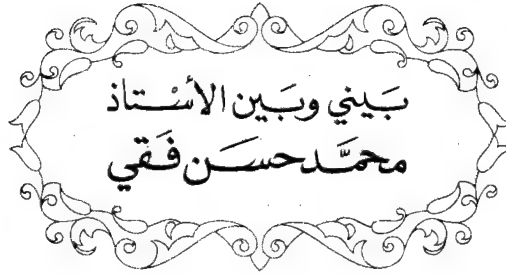 بَيني وبَين الأسْتاذ
محمَّد حسَن فَقي